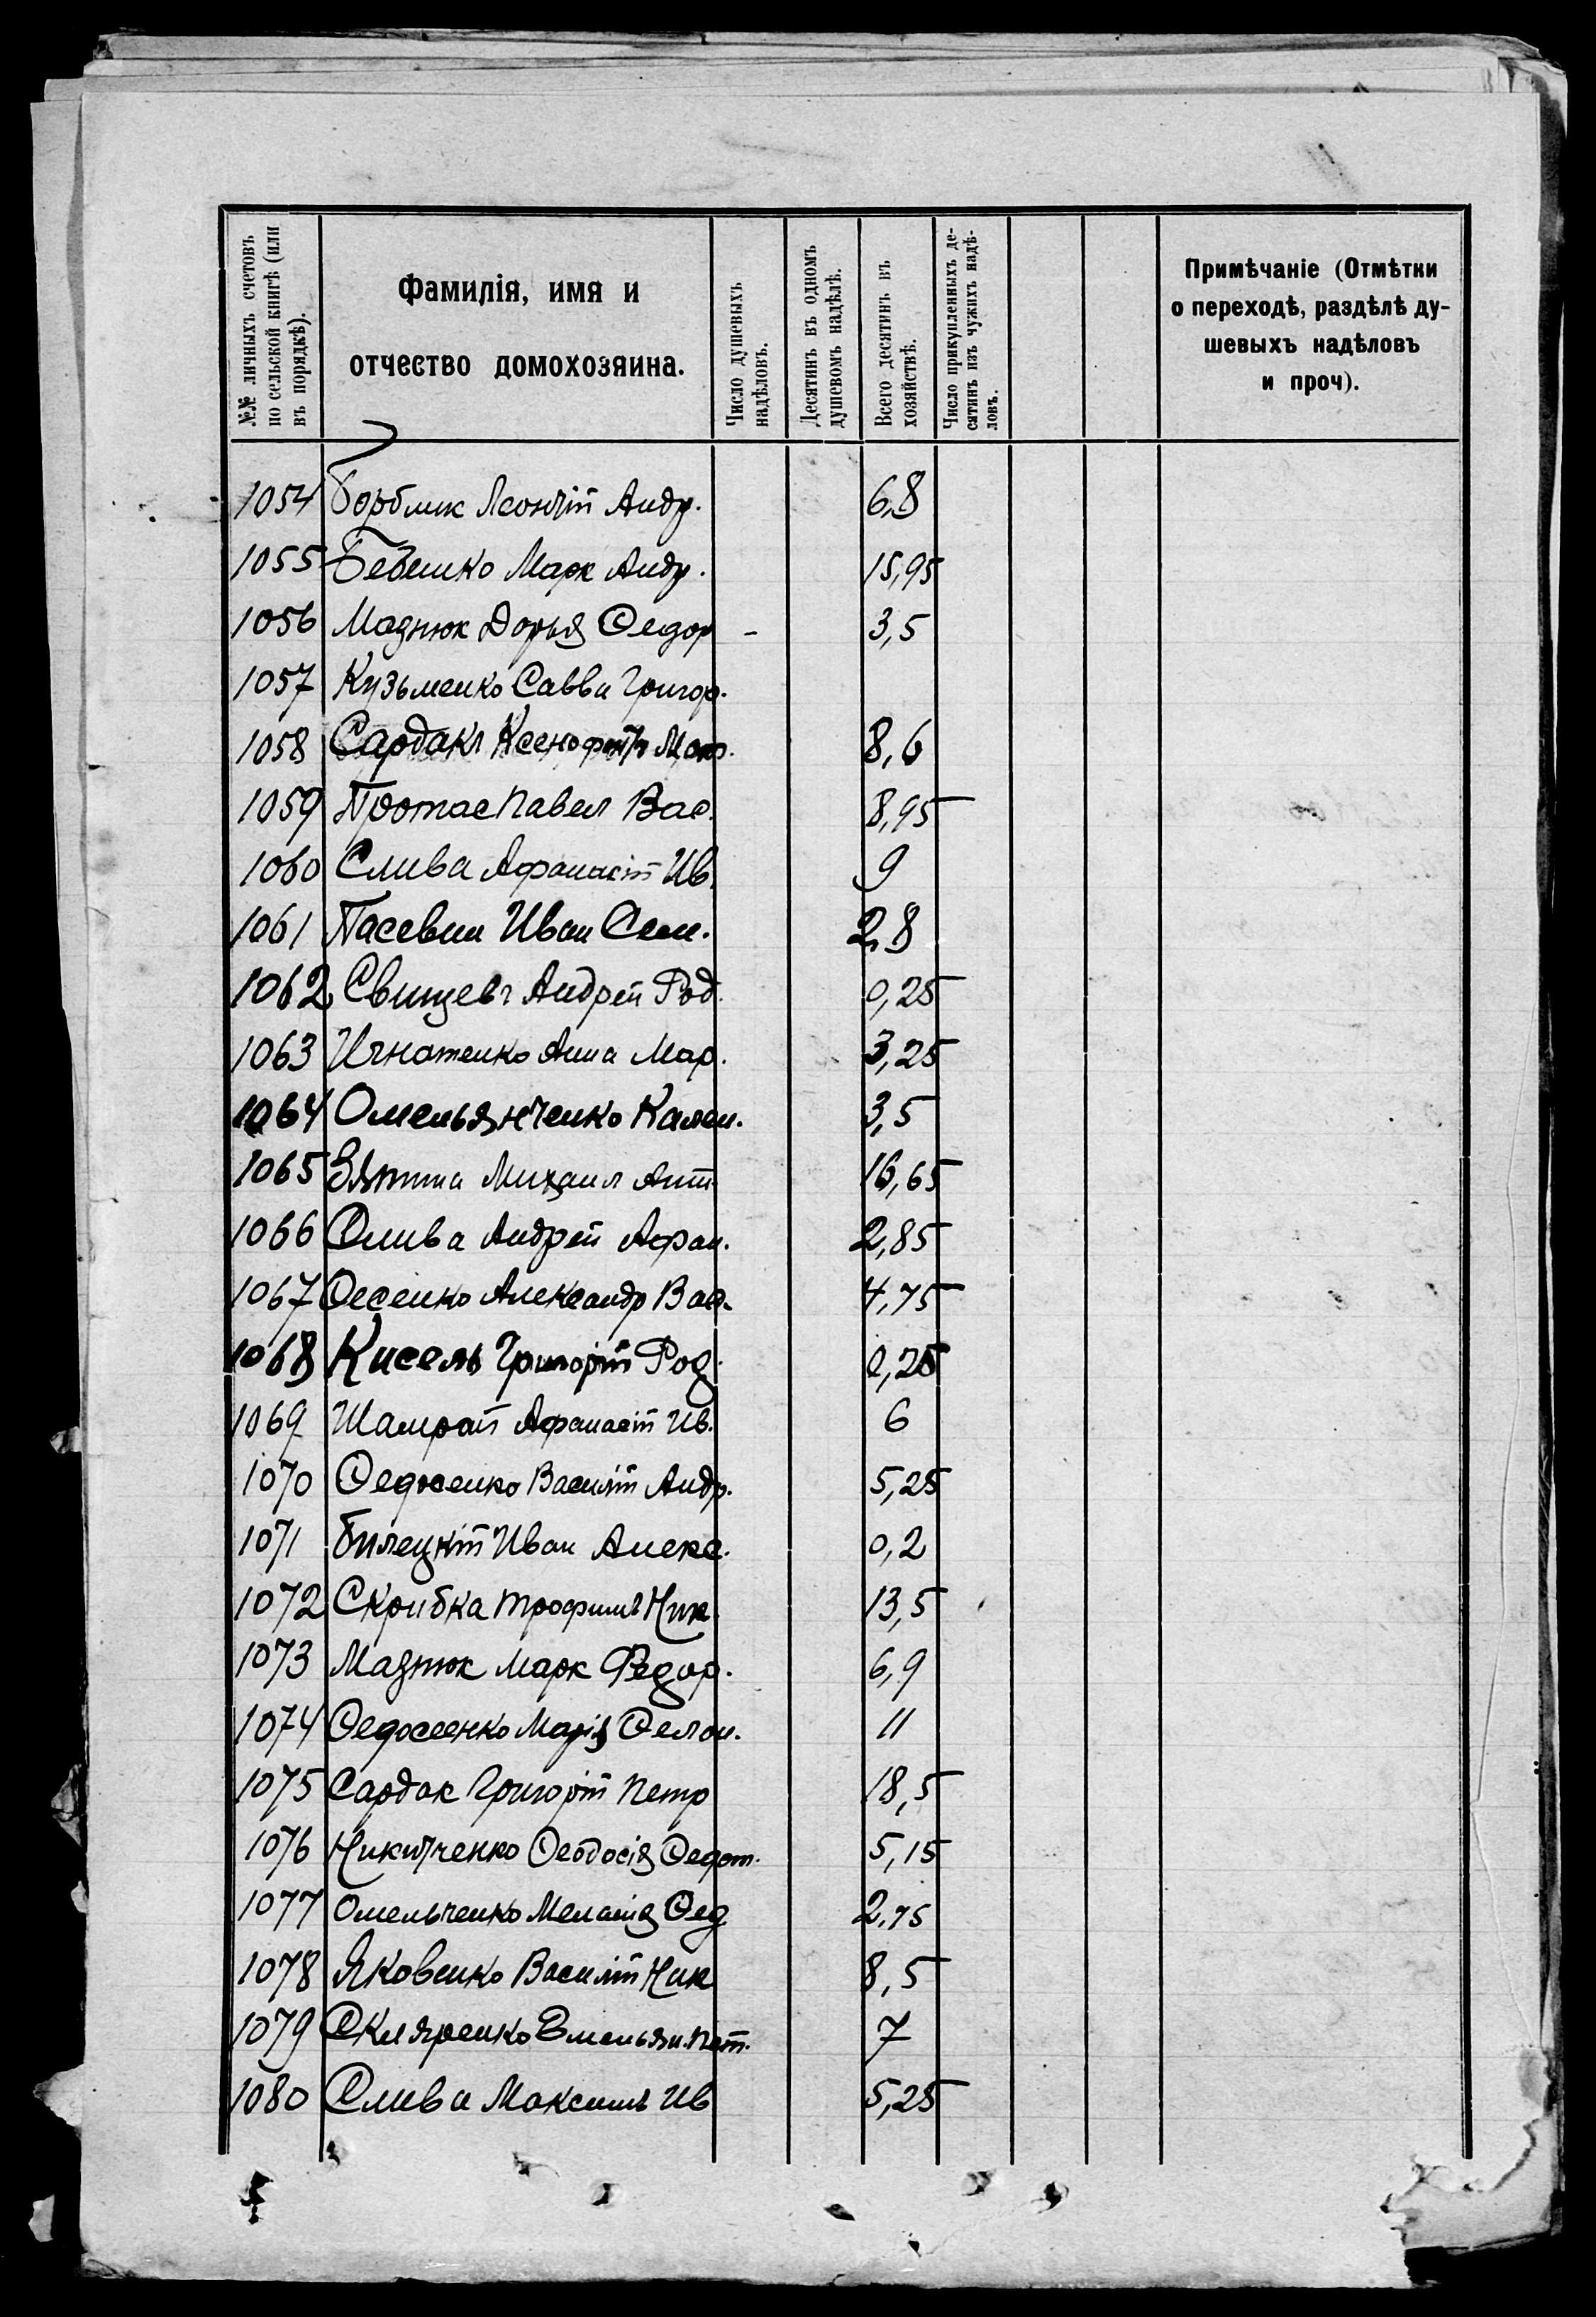 №№ личныхъ счетовъ
по сельской книгѣ (или
въ порядкѣ).
Фамилія, имя и
отчество домохозяина.
Число душевыхъ
надѣловъ.
Десятинъ въ одномъ
душевомъ надѣлѣ.
Всего десятинъ въ
хозяйствѣ.
Число прикупленныхъ де-
сятинъ изъ чужихъ надѣ-
ловъ.
Примѣчаніе (Отмѣтки
о переходѣ, раздѣлѣ ду-
шевыхъ надѣловъ
и проч).
1054 Леонтій Андр. 6,8
1055 Марк Андр. 15,95
1056 Мазнюк Дорья Ѳедор - 3,5
1057 Кузьменко Савва Григор.
1058 Сардакъ Ксенофонтъ 8,6
1059 Протас Павел Вас. 8,95
1060 Слива Афанасій Ив. 9
1061 Иван Сем. 2,8
1062 Свищевъ Андрей Род. 0,25
1063 Игнатенко Анна Мар. 3,25
1064 Омельянченко 3,5
1065 Михаил Ант. 16,65
1066 Слива Андрей Афан. 2,85
1067 Ѳесенко Александр Вас. 4,75
1068 Кисель Григорій Род. 0,25
1069 Шамрай Афанасій Ив. 6
1070 Василій Андр. 5,25
1071 Билецкій Иван Алекс. 0,2
1072 Скрибка Трофимъ Ник. 13,5
1073 Мазнюк Марк Федор. 6,9
1074 Ѳедосеенко Марія 11
1075 Сардак Григорій Петр 18,5
1076 Никитченко Ѳеодосія Ѳедот. 5,15
1077 Омельченко Меланія Ѳед 2,75
1078 Яковенко Василій Ник 8,5
1079 Скляренко Емельян. Пет. 7
1080 Слива Максимъ Ив 5,25